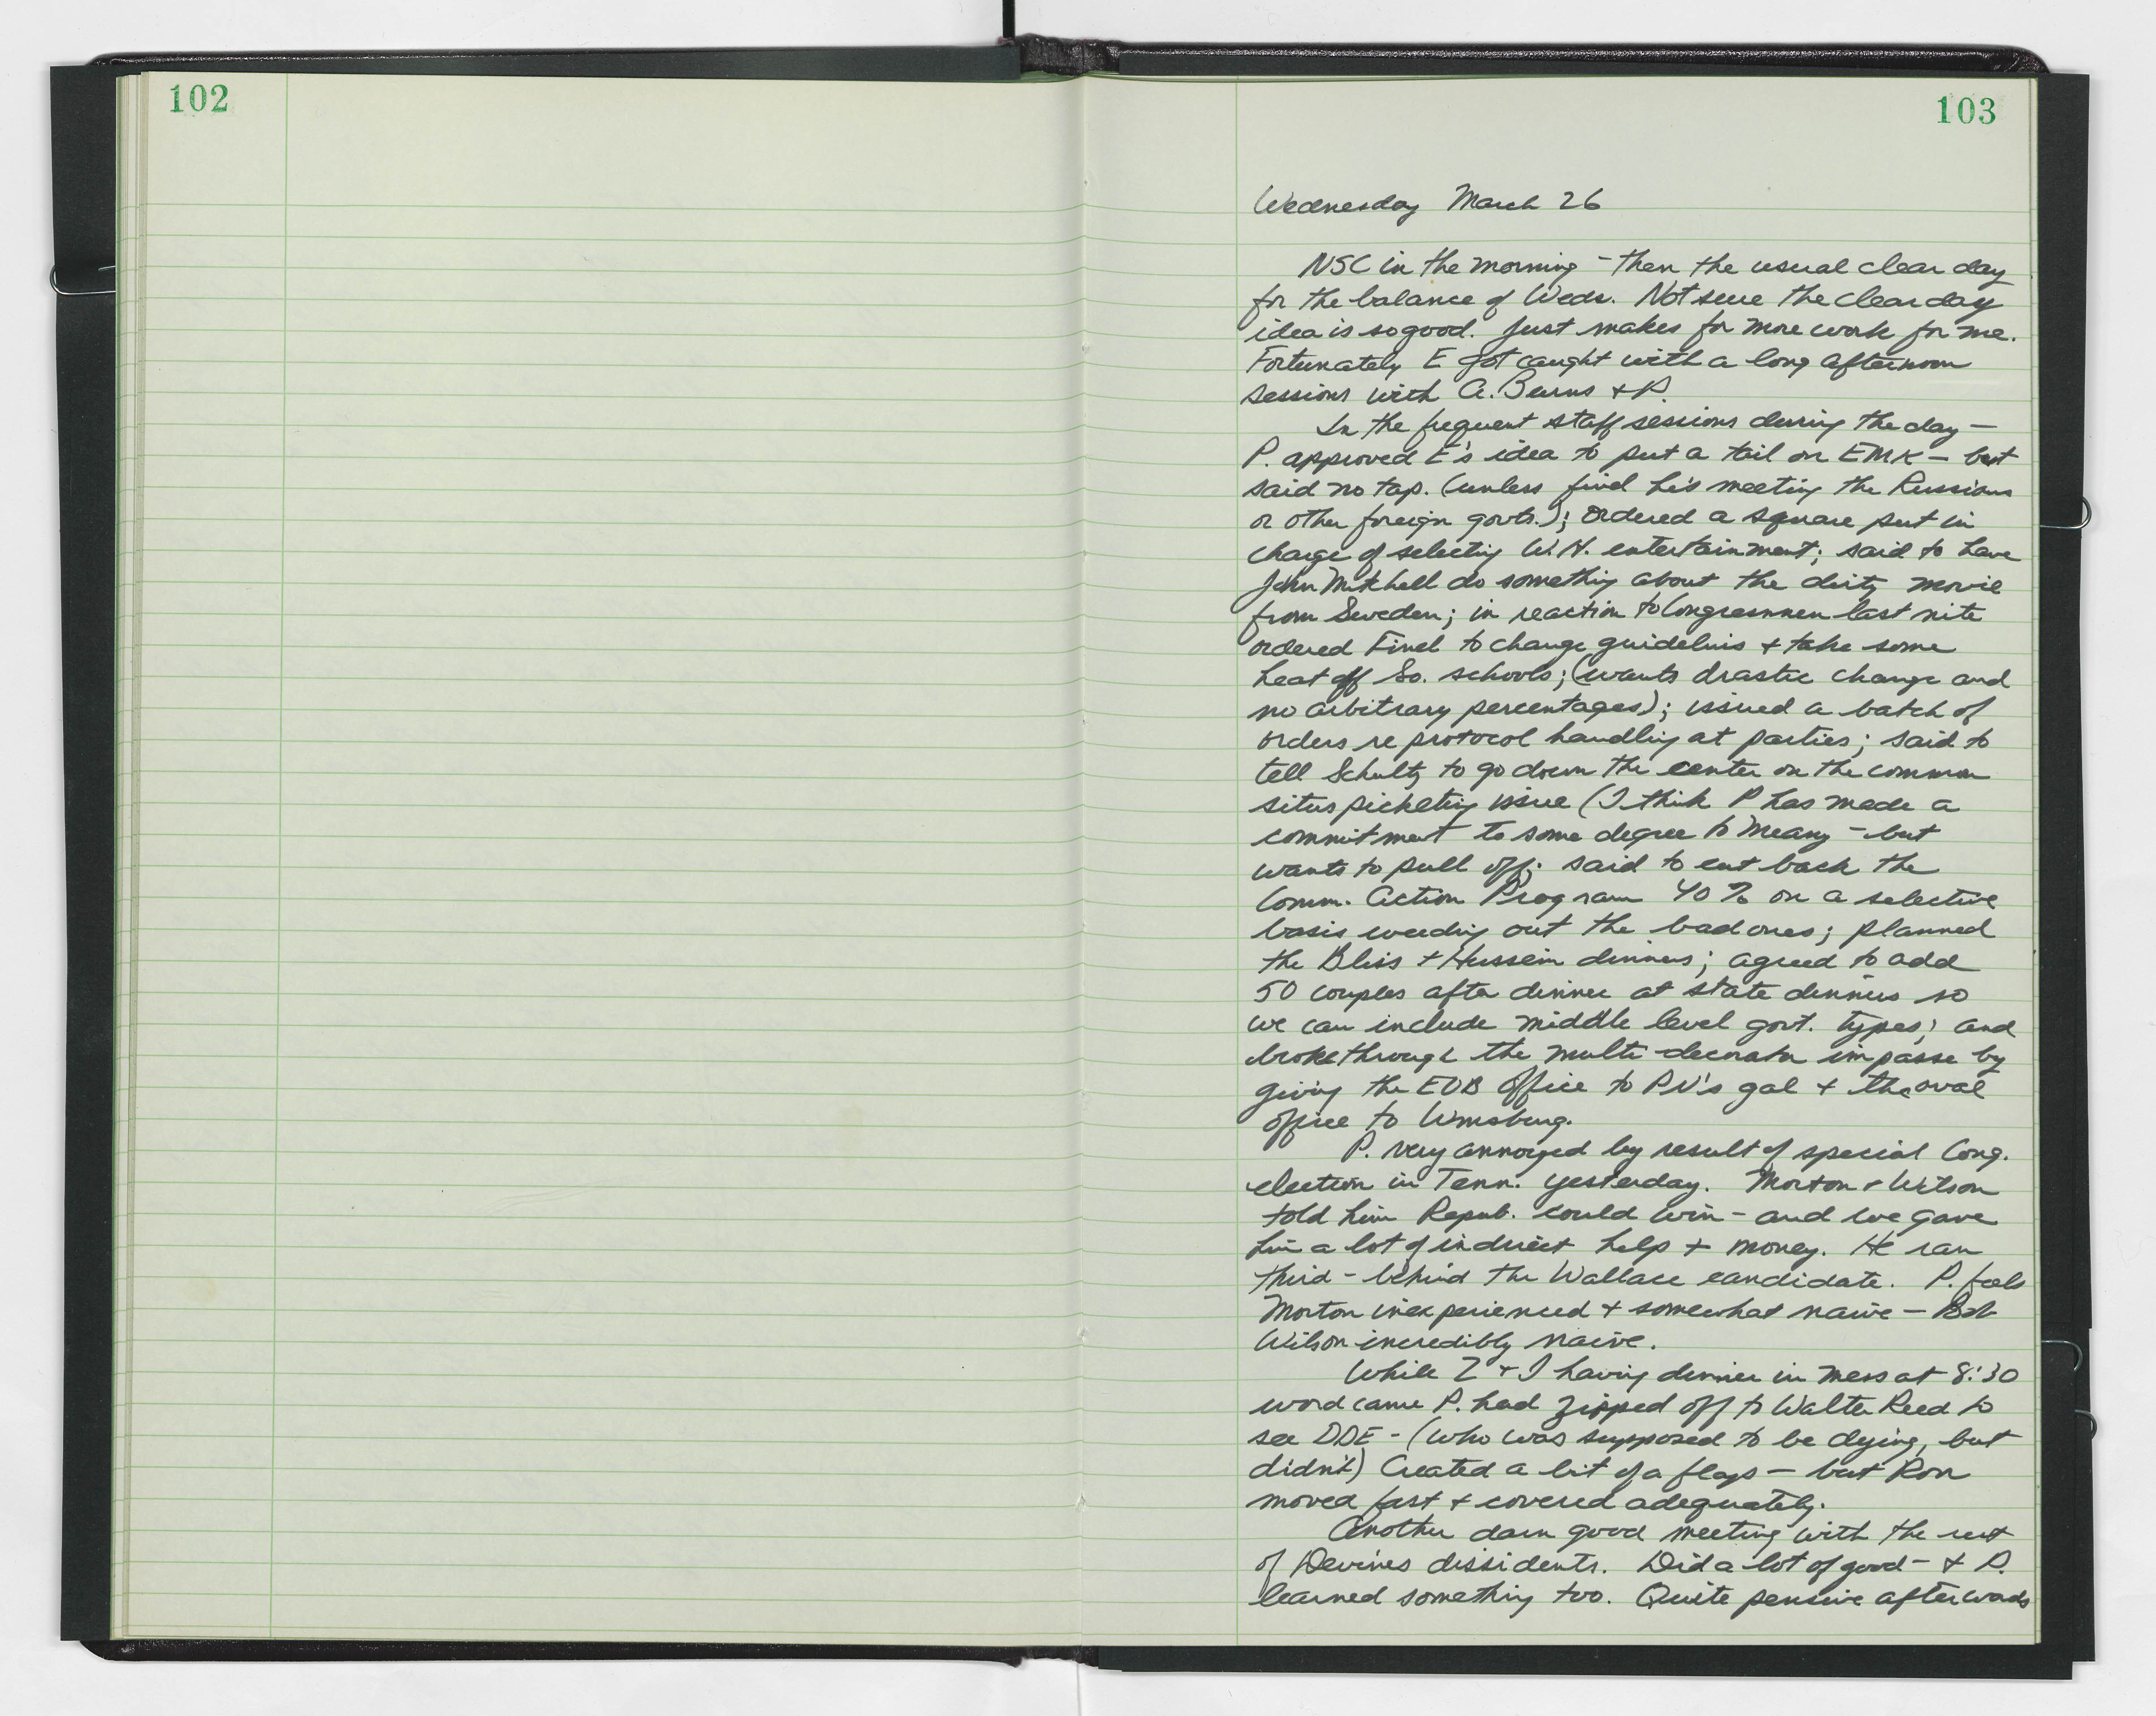 102
103
Wednesday March 26
NSC in the morning - then the usual clear day
for the balance of Weds. Not sure the clear day
idea is so good. Just makes for more work for me.
Fortunately E got caught with a long afternoon
sessions with A. Burns + P.
In the frequent staff sessions during the day —
P. approved E's idea to put a tail on EMK — but
said no tap. (unless find he's meeting the Russians
or other foreign govts.); ordered a square put in
charge of selecting W.H. entertainment; said to have
John Mitchell do something about the dirty movie
from Sweden; in reaction to Congressmen last nite
ordered Finch to change guidelines + take some
heat off So. schools; (wants drastic change and
no arbitrary percentages); issued a batch of
orders re protocol handling at parties; said to
tell Schultz to go down the center on the common
situs picketing issue (I think P has made a
commitment to some degree to Meany - but
wants to pull off; said to cut back the
Comm. Action Program 40% on a selective
basis weeding out the bad ones; planned
the Bliss + Hussein dinners; agreed to add
50 couples after dinner at state dinners so
we can include middle level govt. types; and
broke through the multi-decorator impasse by
giving the EOB office to PN's gal + the oval
office to Wmsburg.
P. very annoyed by result of special Cong.
election in Tenn. yesterday. Morton + Wilson
told him Repub. could win - and we gave
him a lot of indirect help + money. He ran
third - behind the Wallace candidate. P. feels
Morton inexperienced + somewhat naive — Bob
Wilson incredibly naive.
While Z + I having dinner in mess at 8:30
word came P. had zipped off to Walter Reed to
see DDE - (who was supposed to be dying, but
didn't) Created a bit of a flap — but Ron
moved fast + covered adequately.
Another darn good meeting with the rest
of Devine's dissidents. Did a lot of good - + P.
learned something too. Quite pensive afterwards